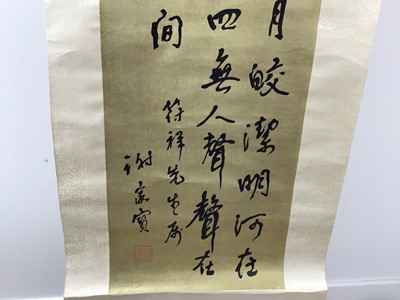 月皎潔明河在
四無人聲聲在
間
符祥先生属
謝宗寶